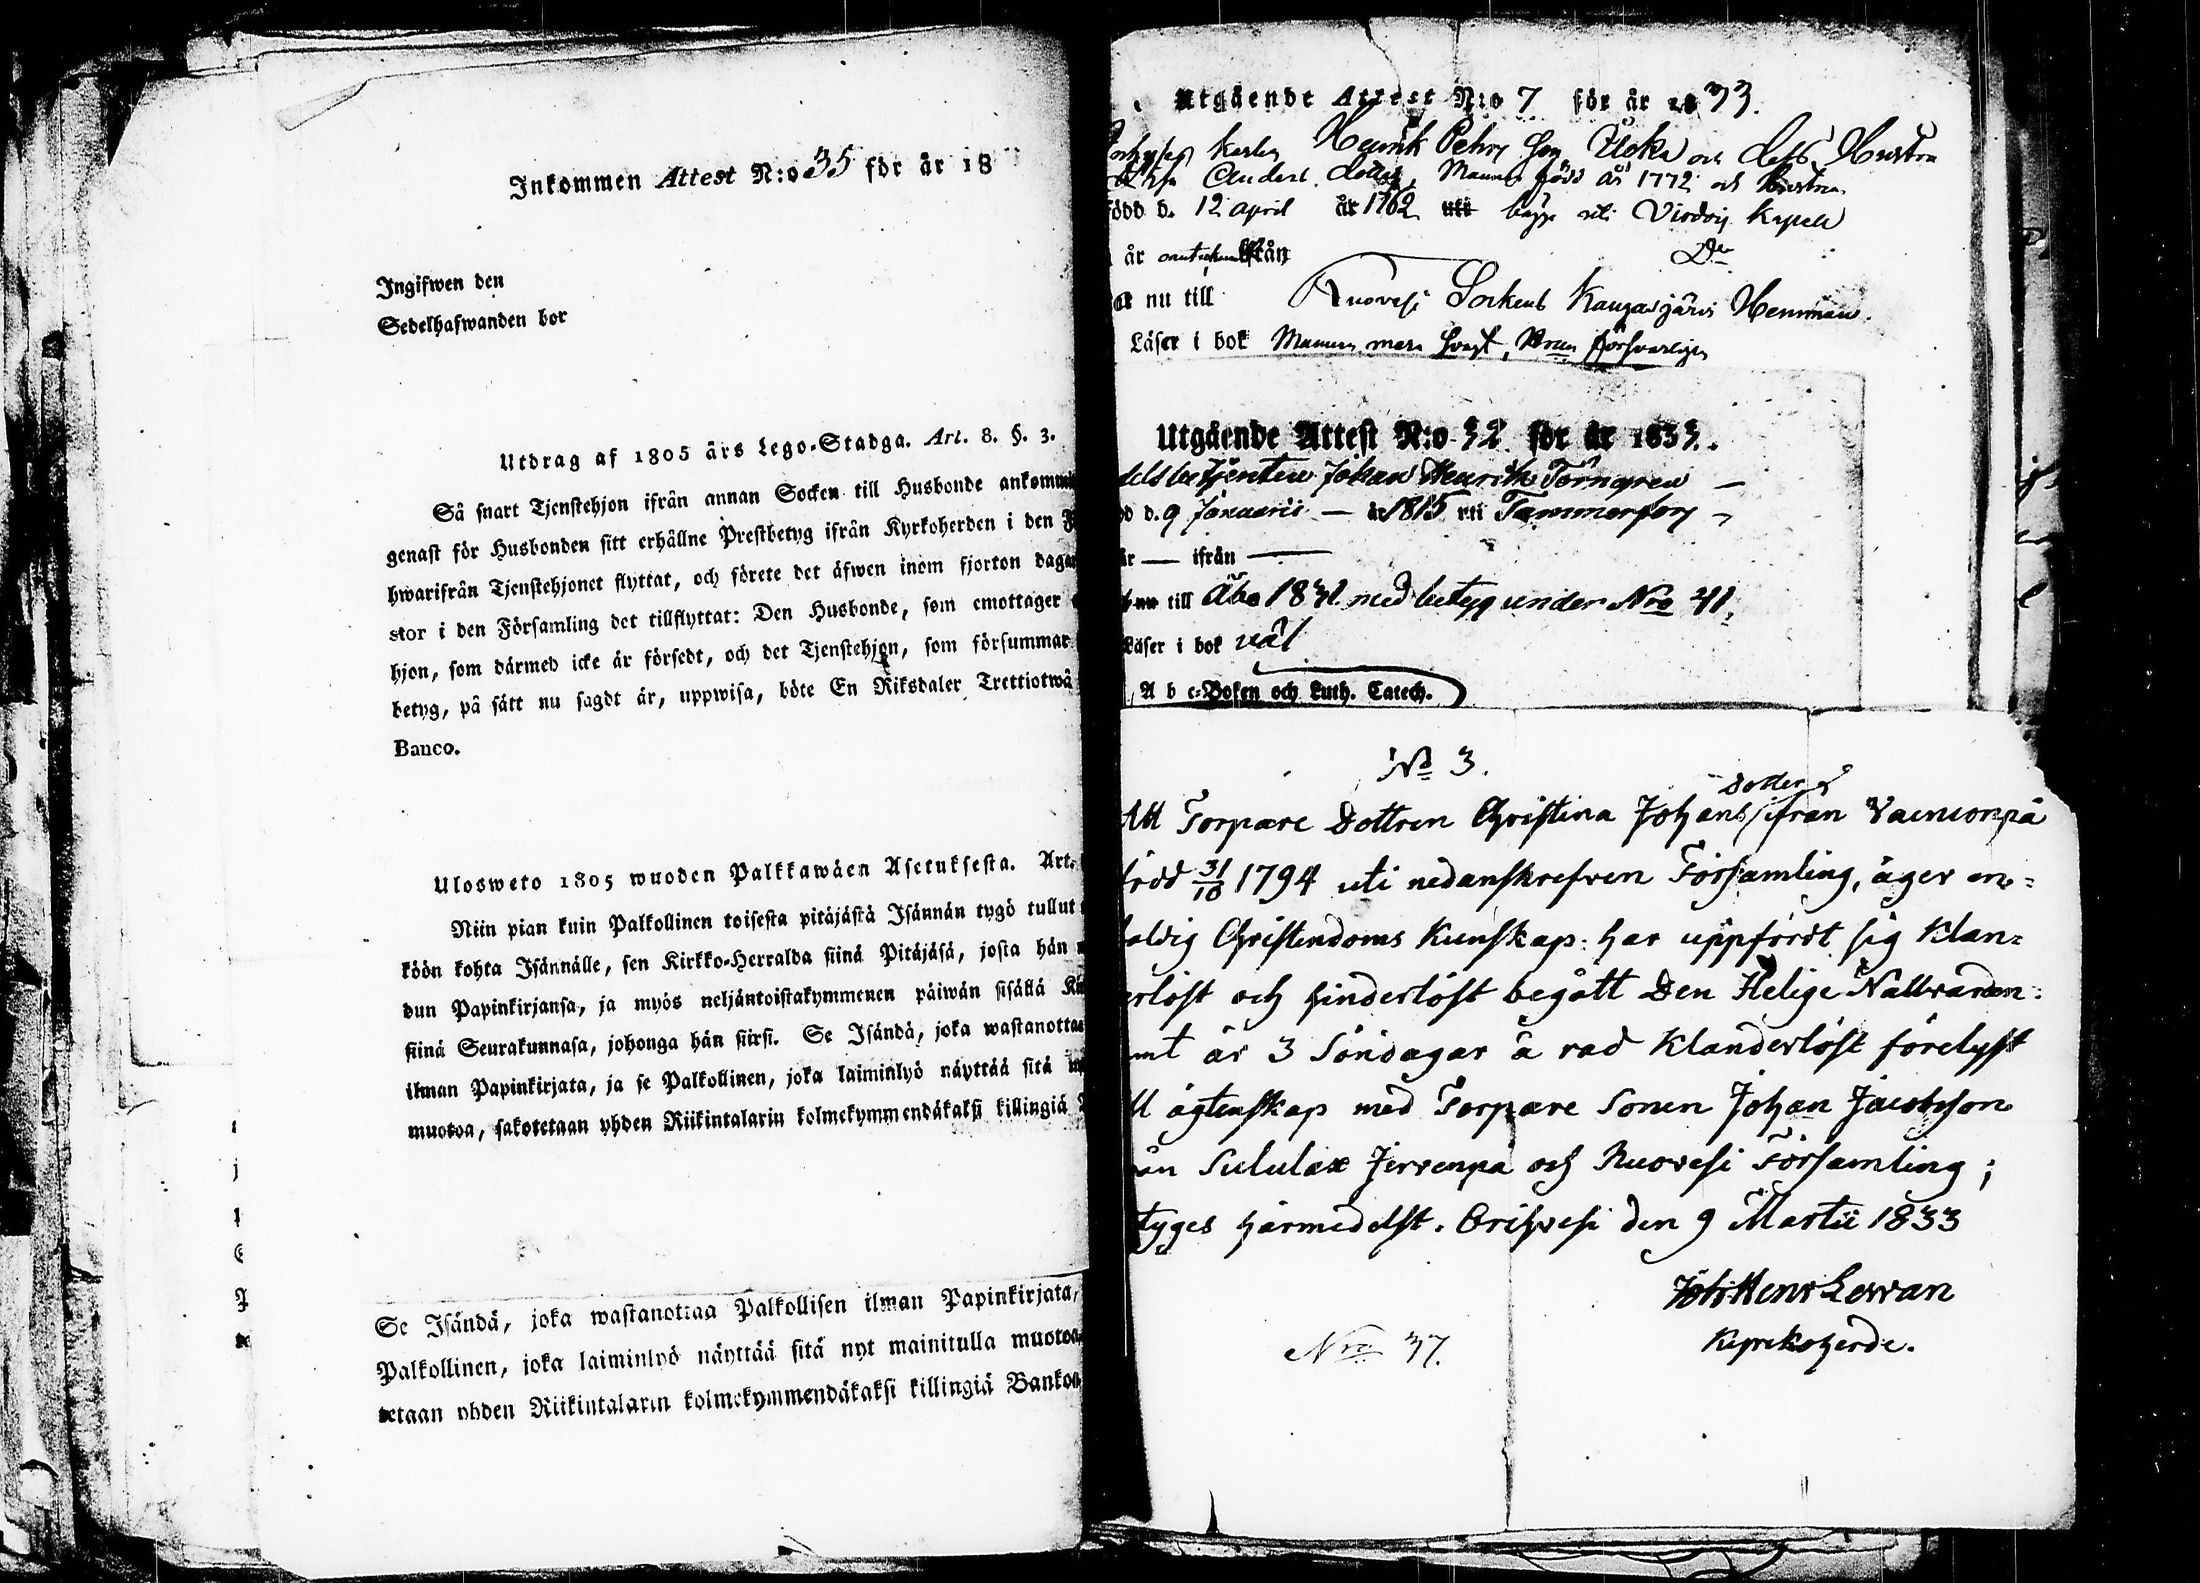 Inkommen Attest N:o 35 för år 18
Ingifwen den
Sedelhafwanden bor
Utdrag af 1805 års Lego-Stadga. Art. 8. §. 3.
Så snart Tjenstehjon ifrån annan Socken till Husbonde ankommi
genast för Husbonden sitt erhållne Prestbetyg ifrån Kyrkoherden i den F
hwarifrån Tjenstehjonet flyttat, och förete det äfwen inom fjorton dagar
stor i den Församling det tillflyttat: Den Husbonde, som emottager
hjon, som därmed icke är försedt, och det Tjenstehjon, som försummar
betyg, på sätt nu sagdt är, uppwisa, böte En Riksdaler Trettiotwå
Banco.
Ulosweto 1805 wuoden Palkkawäen Asetuksesta. Art.
Niin pian kuin Palkollinen toisesta pitäjästä Isännän tygö tullut
köön kohta Isännälle, sen Kirkko-Herralda siinä Pitäjäsä, josta hän
dun Papinkirjansa, ja myös neljäntoistakymmenen päiwän sisällä Ki
siinä Seurakunnasa, johonga hän siirsi. Se Isändä, joka wastanottaa
ilman Papinkirjata, ja se Palkollinen, joka laiminlyö näyttää sitä
muotoa, sakotetaan yhden Riikintalarin kolmekymmendäkaksi killingiä
Se Isändä, joka wastanottaa Palkollisen ilman Papinkirjata,
Palkollinen, joka laiminlyö näyttää sitä nyt mainitulla muotoa,
tetaan yhden Riikintalarin kolmekymmendäkaksi killingiä Bankos
Utgående Attest N:o 7 för år 1833.
Karlen Henrik Pehrs Son och dess Hustru
Anders dotter, Mannen född år 1772 och Hustrun
född d. 12 April år 1762 uti begge uti Virdois Kapell
år ifrån D:o
nu till Ruovesi Sockens Kangasjärvi Hemman.
Läser i bok Mannen mera svagt, Hrun försvarligen
Utgående Attest N:o 32 för år 1833.
delsbetjenten Johan Henrik Törngren —
d d. 9 Januarii — år 1815 uti Tammerfors
år — ifrån —
nu till Åbo 1831 med betyg under Nro 41.
Läser i bok väl
, A b c-Boken och Luth. Catech.
No 3.
dotter
Att Torpare Dottren Christina Johans ifrån Vainionpä
född 31/10 1794 uti nedanskrefven Församling, äger en-
faldig Christendoms Kunskap: har uppfördt sig Klan-
erlöst och hinderlöst begått Den Helige Nattvarden:
amt är 3 Söndagar å rad Klanderlöst förelyst
ll ägtenskap med Torpare Sonen Johan Jacobsson
ån Sululax Jervenpä och Ruovesi Församling;
tyges härmedelst. Orihvesi den 9 Martii 1833
Joh: Henr Lerran
Kyrkoherde.
Nro 37.